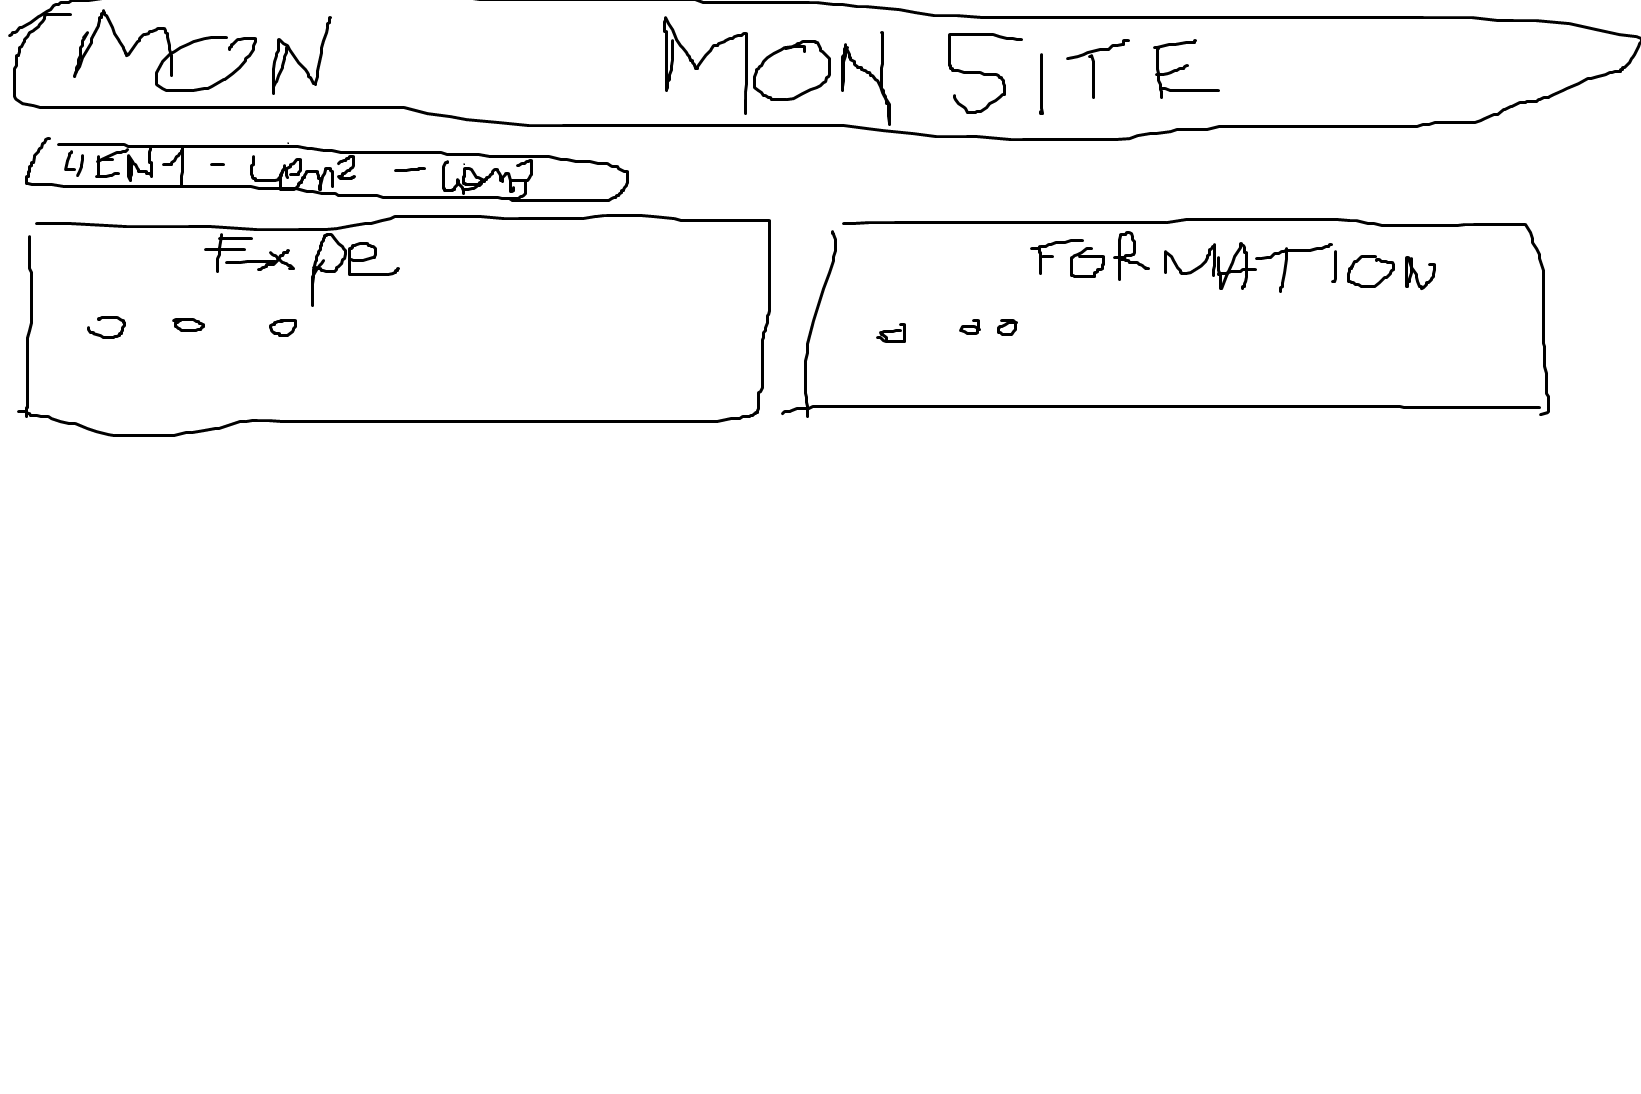 MON MON SITE
LIEN1 - Lien2 - Lien3
Expe
FORMATION